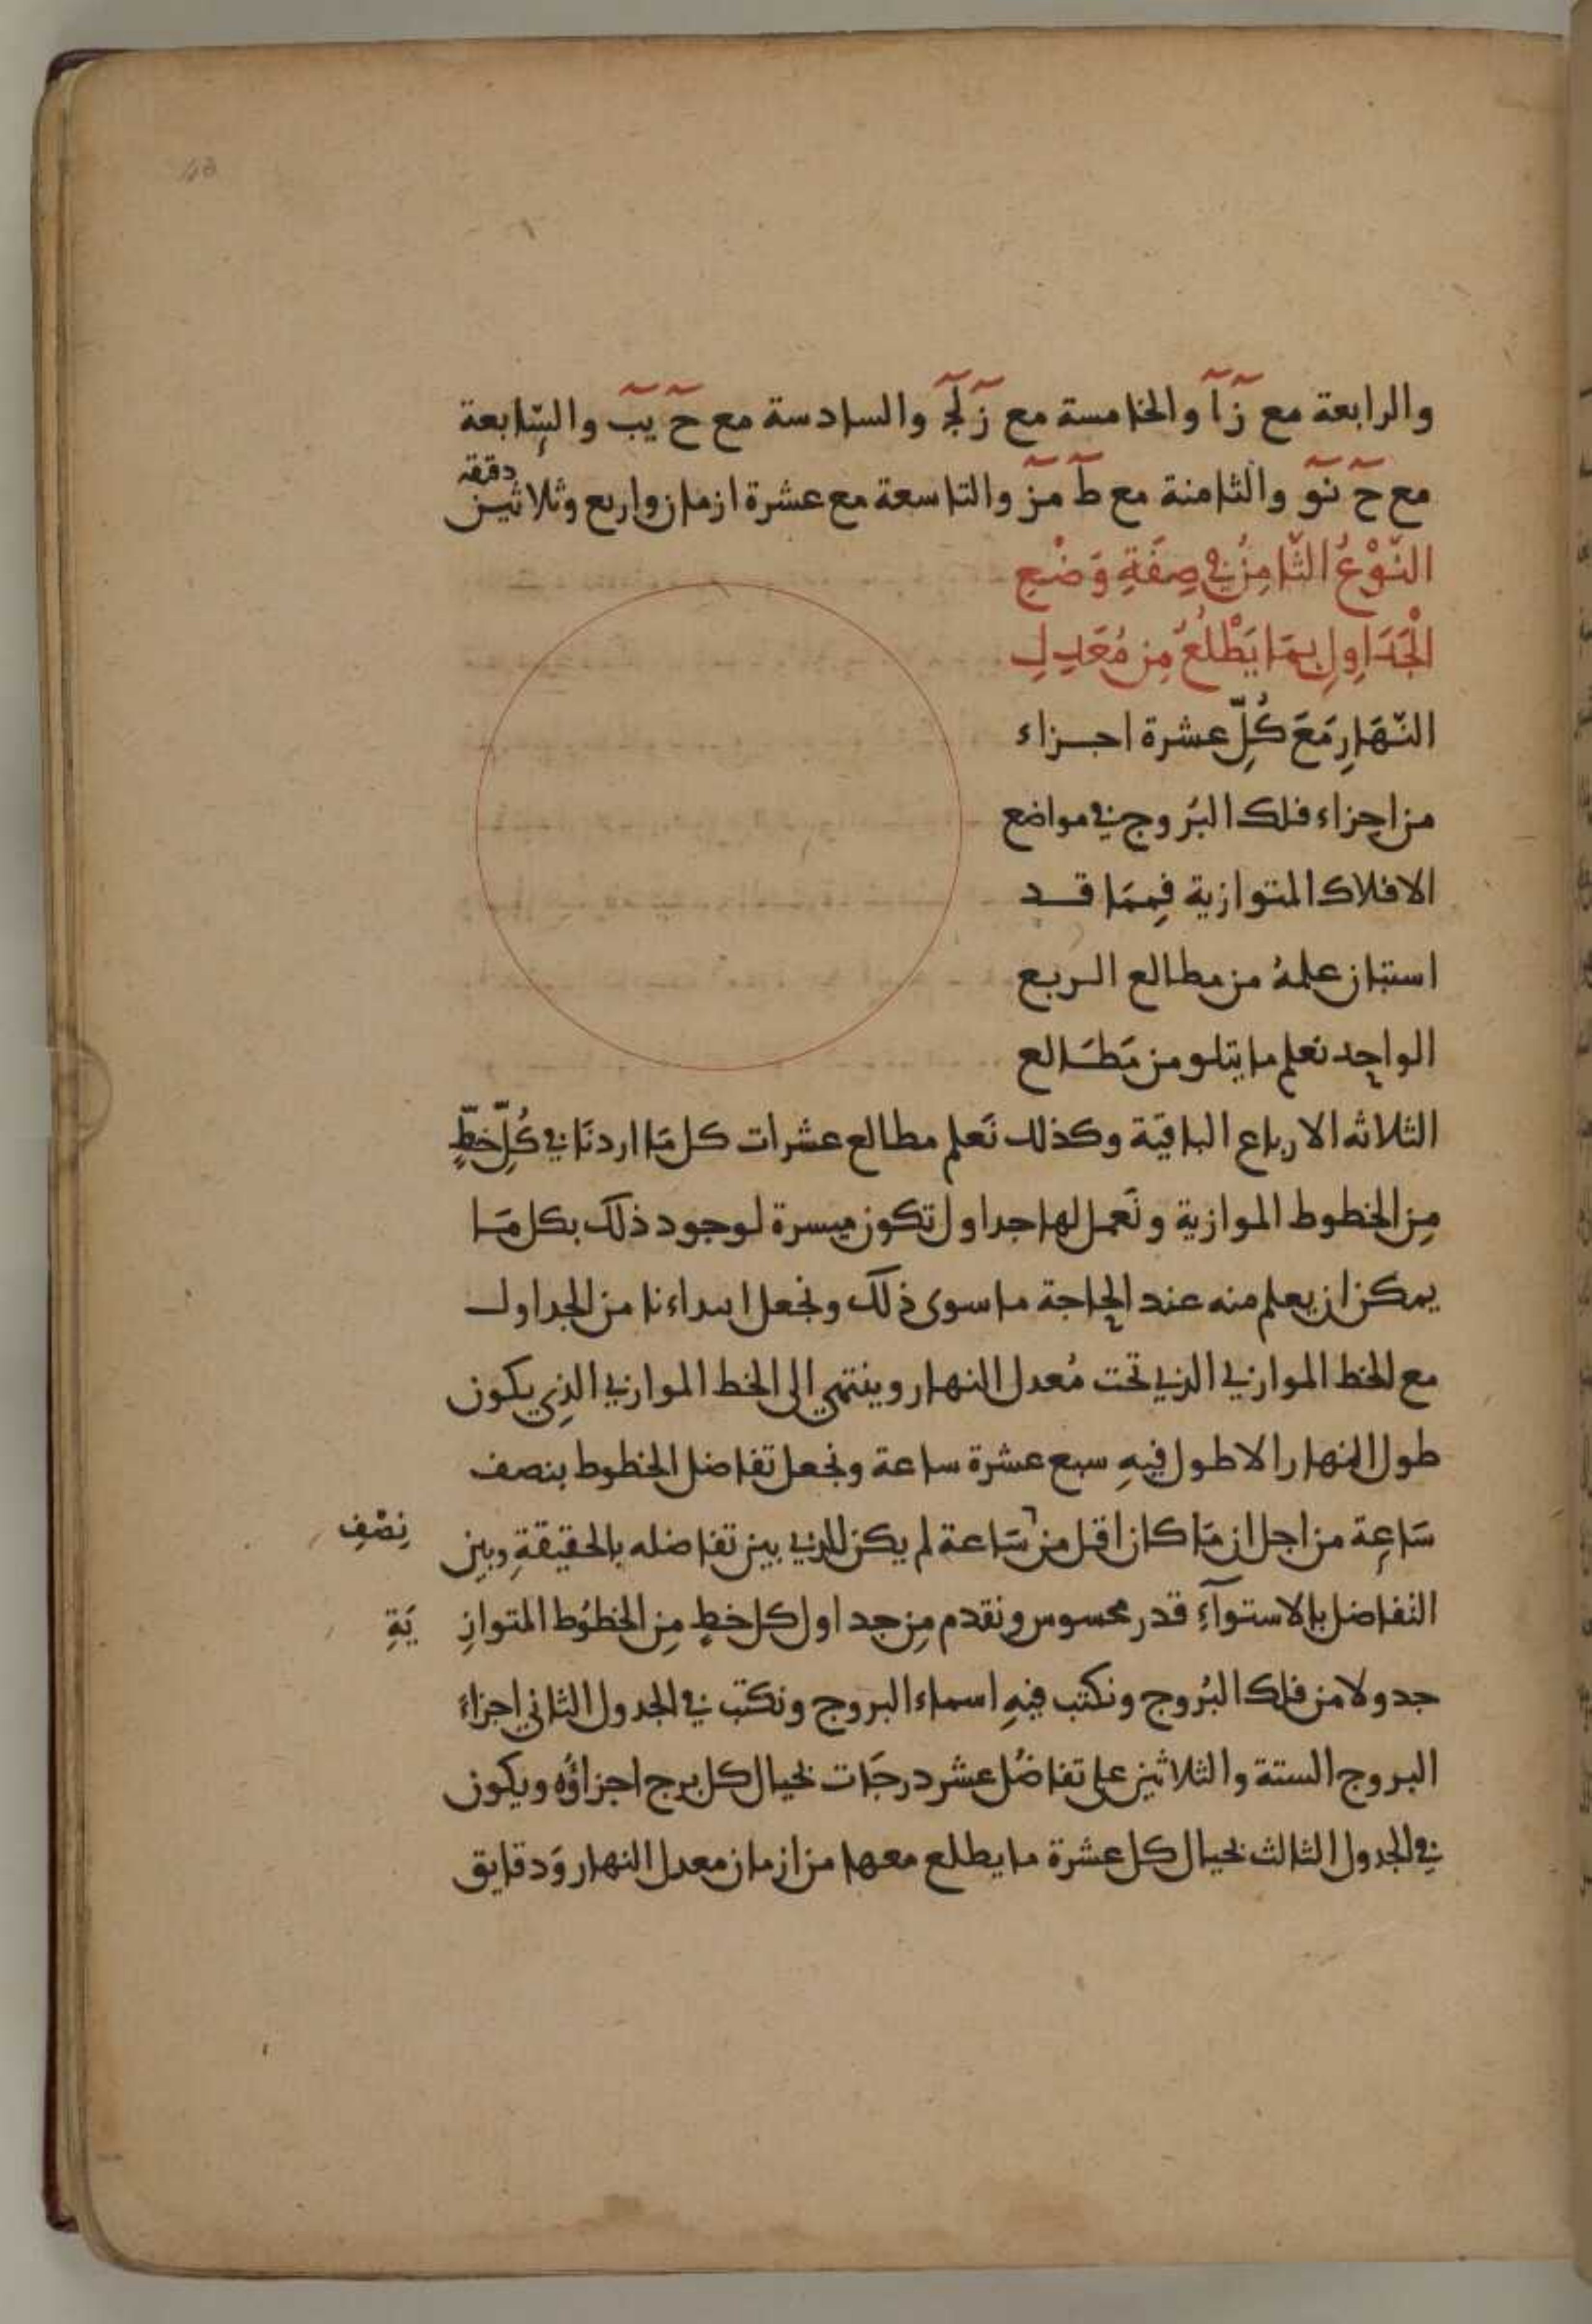 والرابعة مع زَ اَ والخامسة مع زَ لَجَ والسادسة مع حَ يبَ والسّابعة
مع حَ نوَ والثامنة مع طَ مزَ والتاسعة مع عشرة ازمان واربع وثلاثين دقيقه
النَّوْعُ الثَّامِنُ في صِفَةِ وَضْعِ
الْجَدَاوِلِ بِمَا يَطْلُعُ مِن مُعَدِلِ
النَّهَارِ مَعَ كُلِّ عشرة اجزاء
من اجزاء فلك البُروج في مواضع
الافلاك المتوازية فمِمَا قد
استبان علمهُ من مطالع الربع
الواحد نعلم ما يتلو من مَطَالع
الثلاثه الارباع الباقيَة وكذلك نَعلم مطالع عشرات كل مَا اردنَا في كُلِّ خطٍّ
مِن الخطوط الموازية ونَعمل لها جداول تكون ميسرة لوجود ذلك بكل مَا
يمكن ان يعلم منه عند الحاجة ما سوى ذلك ونجعل ابتداءنا من الجداول
مع الخط الموازي الذي تحت مُعدل النهار وينتهي الى الخط الموازي الذِي يكون
طول النهار الاطول فيهِ سبع عشرة ساعة ونجعل تفاضل الخطوط بنصف
سَاعِة من اجل ان مَا كان اقل من سَاعة لم يكن للذي بين تفاضله بالحقيقةِ وبين
نِصْفِ
التفاضل بالاستوآءِ قدر محسوس ونقدم مِن جداول كل خطٍ مِن الخطوُط المتوازِ
يَةِ
جدولا من فلك البُروج ونكتب فيهِ اسماء البروج ونكتب في الجدول الثاني اجزاءَ
البروج الستة والثلاثين على تفاضُل عشر درجَات بحيال كل برج اجزاؤُه ويكون
في الجدول الثالث بحيال كل عشرة ما يطلع معها من ازمان معدل النهار وَدقايق